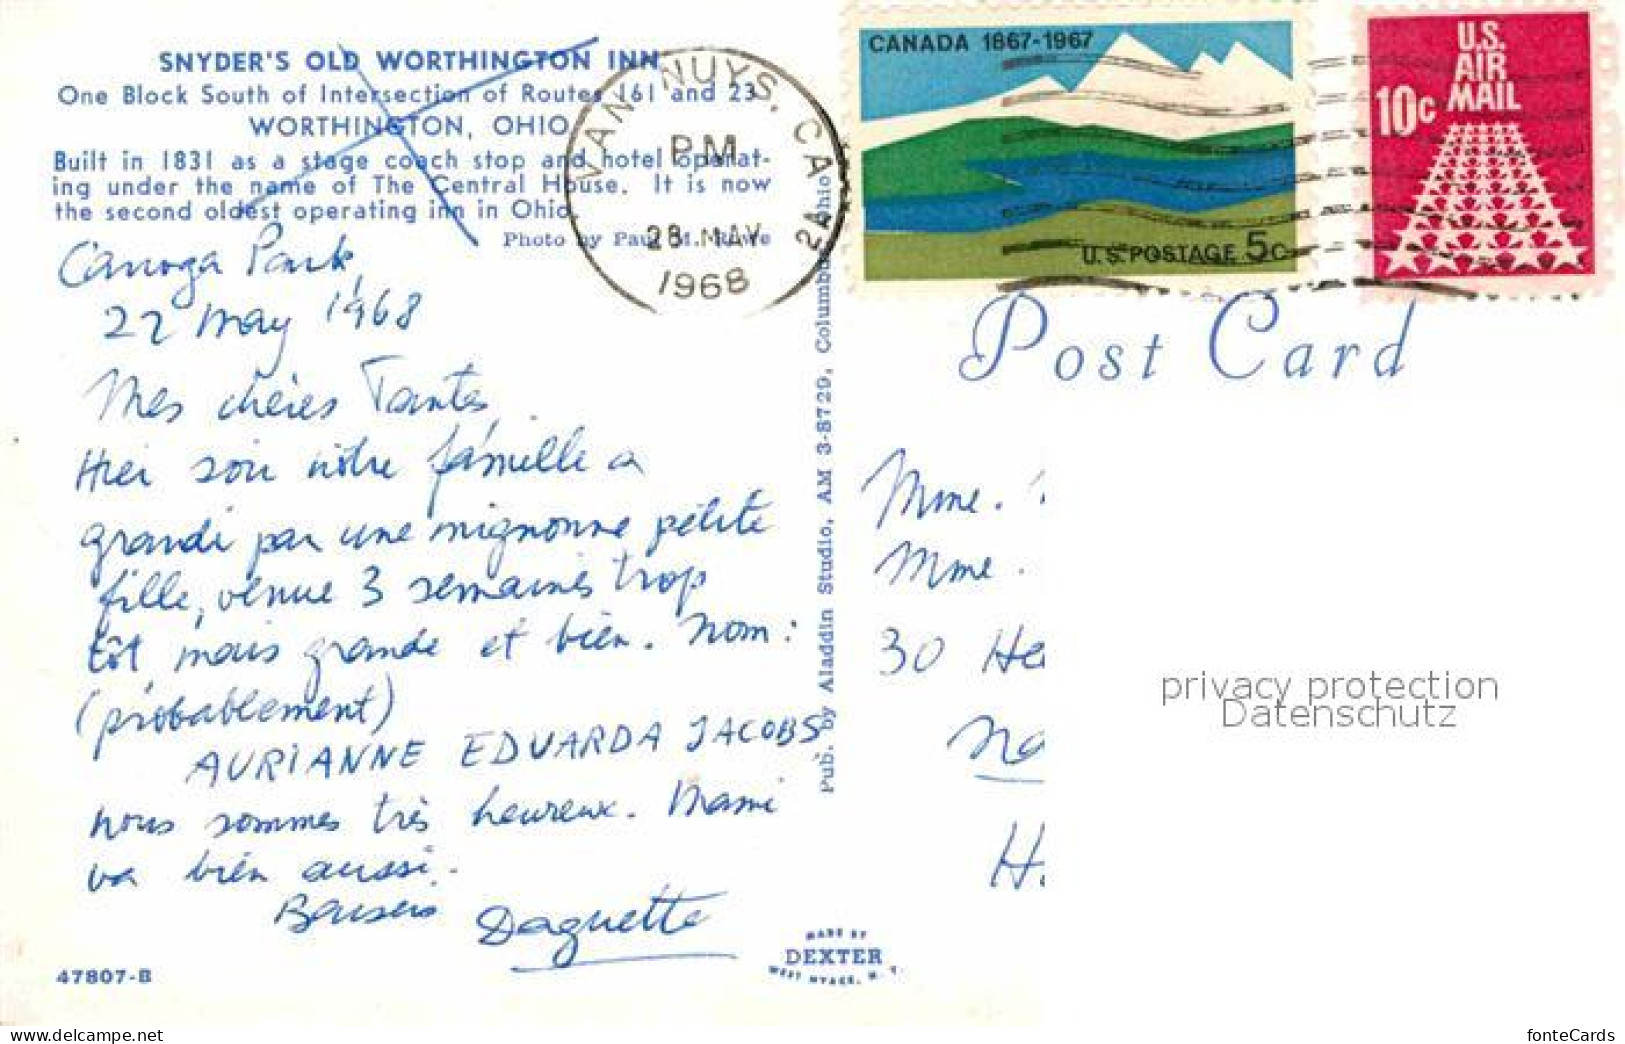 SNYDER'S OLD WORTHINGTON INN
One Block South of Intersection of Routes 161 and 23
WORTHINGTON, OHIO
Built in 1831 as a stage coach stop and hotel operat-
ing under the name of The Central House. It is now
the second oldest operating inn in Ohio.
Photo by Paul M. Rowe
Canoga Park,
22 May 1968
Mes chères Tantes,
Hier soir nôtre famille a
grandi par une mignonne petite
fille, venue 3 semaines trop
tôt, mais grande et bien. Nom:
(probablement)
AURIANNE EDUARDA JACOBS
nous sommes très heureux. Mami
va bien aussi.
Baisers Daguette
47807-B
Pub. by Aladdin Studio, AM 3-8729, Columbus, Ohio
MADE BY
DEXTER
WEST NYACK, N. Y.
VAN NUYS, CA
PM
28 MAY
1968
2A
CANADA 1867-1967
U.S. POSTAGE 5c
U.S.
AIR
MAIL
10c
Post Card
Mme.
Mme.
30 He
Na
H
privacy protection
Datenschutz
www.delcampe.net
fonteCards